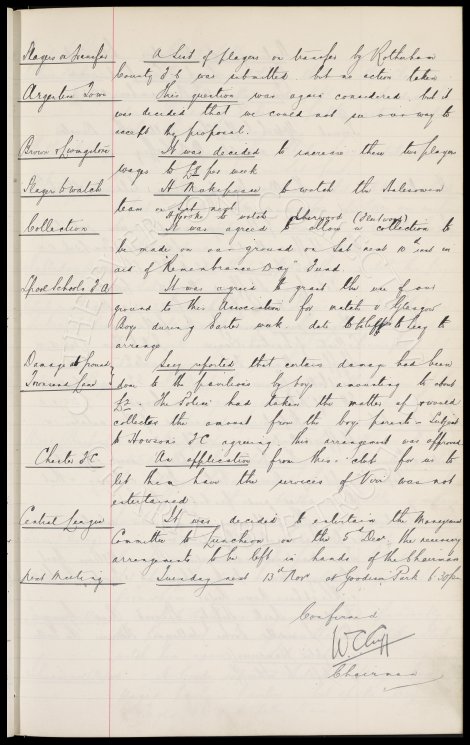 Players on transfer A list of players on transfer by Rotherham
County F.C. was submitted but no action taken
Argentine Tour This question was again considered but it
was decided that we could not see our way to
accept the proposal.
Brown & Livingstone It was decided to increase these two players
wages to per week
Player to watch H Makepeace to watch the Halesowen
team on Sat next
to watch Sherwood
Collection It was agreed to allow a collection to
be made on our ground on Sat next 10th inst in
aid of "Remembrance Day" Fund.
L'pool Schools F.A. It was agreed to grant the use of our
ground to this Association for match v Glasgow
Boys during Easter week date to be left to Secy to
arrange
Damage to Ground Secy reported that certain damage had been
Townsend Lane done to the pavilions by boys amounting to about
The Police had taken the matter up &
collected the amount from the boys parents - Subject
to Howson's F.C. agreeing this arrangement was approved
Chester F.C. An application from this club for us to
let them have the services of Virr was not
entertained.
Central League It was decided to entertain the Management
Committee to Luncheon on the 5th Decr, the necessary
arrangements to be left in hands of the Chairman
Next Meeting Tuesday next 13th Nov at Goodison Park 6.30pm
Confirmed
W.C. Cuff
Chairman